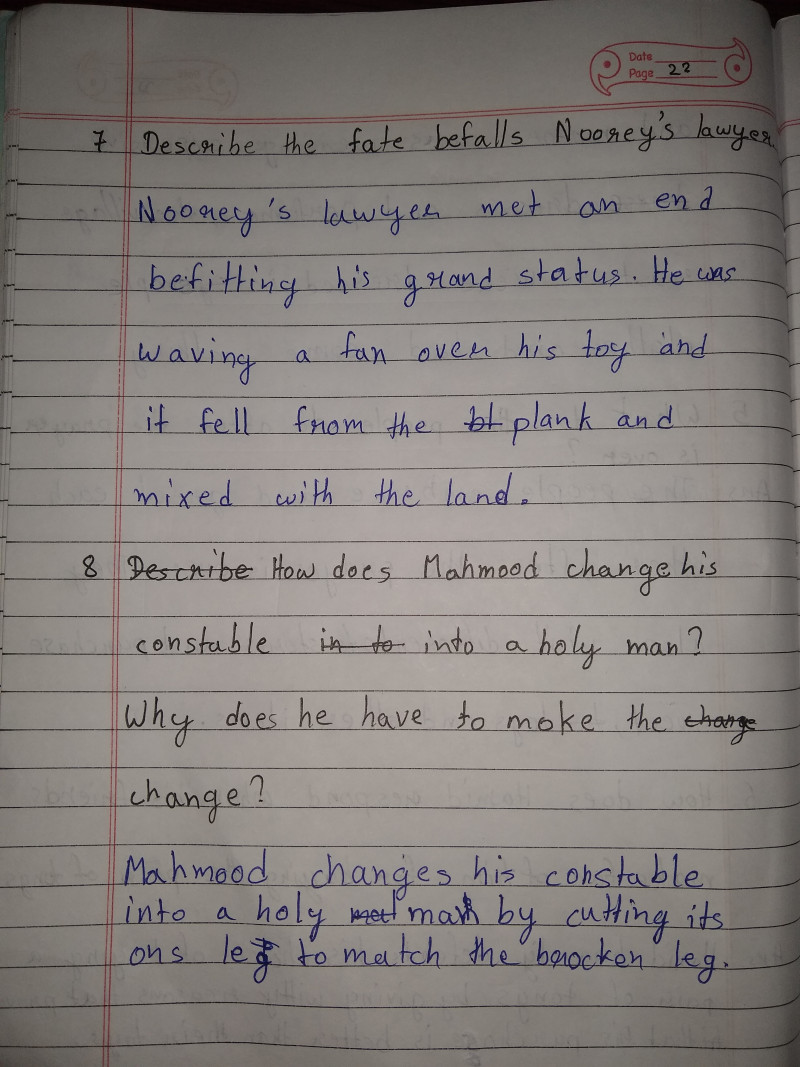 Date
Page 22
7 Describe the fate befalls Noorey's lawyer.
Noorey's lawyer met an end
befitting his grand status. He was
waving a fan over his toy and
it fell from the bt plank and
mixed with the land.
8 Describe How does Mahmood change his
constable in to into a holy man?
Why does he have to moke the change
change?
Mahmood changes his constable
into a holy man by cutting its
ons leg to match the brocken leg.